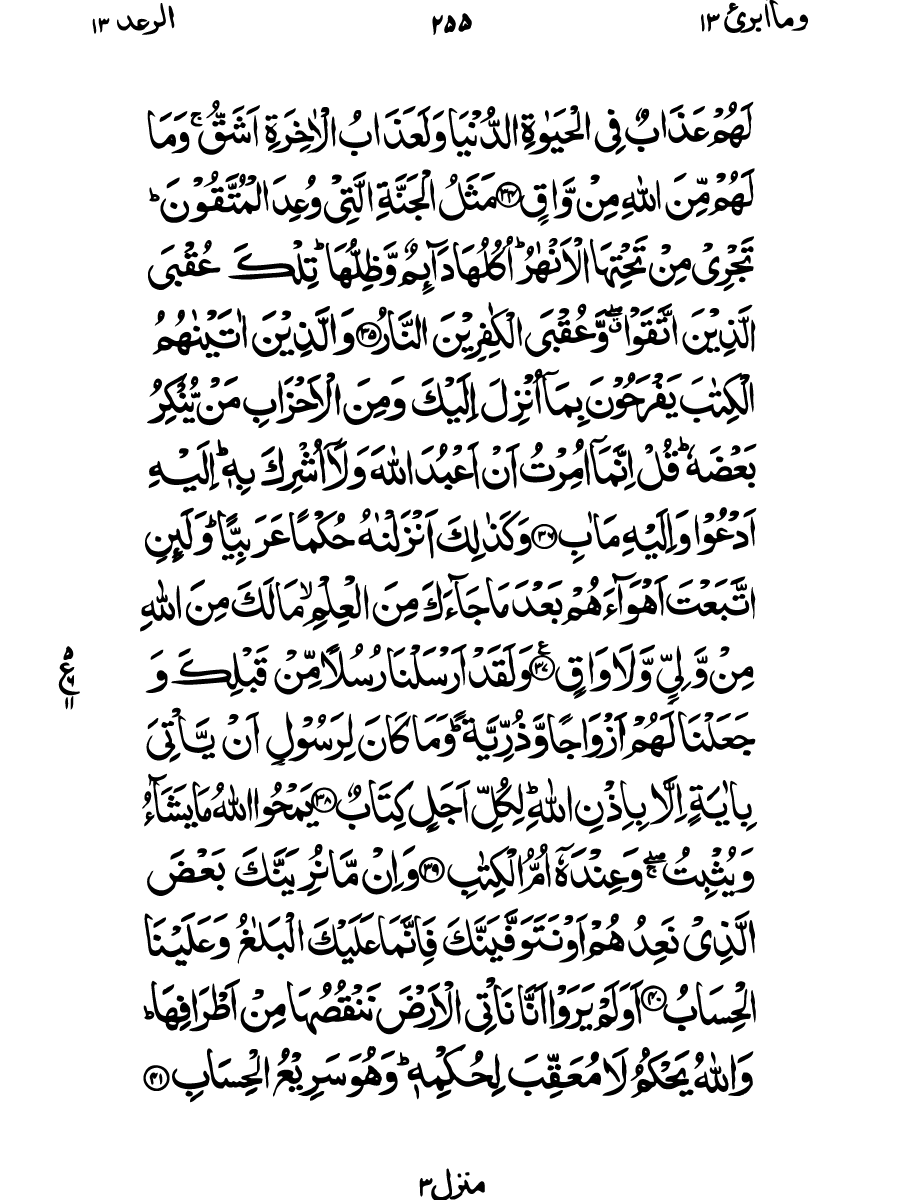 وماابرئ ١٣ ٢٥٥ الرعد ١٣
لَهُمْ عَذَابٌ فِی الْحَیٰوةِ الدُّنْیَا وَلَعَذَابُ الْاٰخِرَةِ اَشَقُّ ۚ وَمَا
لَهُمْ مِّنَ اللّٰهِ مِنْ وَّاقٍ ﴿۳۴﴾ مَثَلُ الْجَنَّةِ الَّتِیْ وُعِدَ الْمُتَّقُوْنَ ؕ
تَجْرِیْ مِنْ تَحْتِهَا الْاَنْهٰرُ ؕ اُكُلُهَا دَآىِٕمٌ وَّظِلُّهَا ؕ تِلْكَ عُقْبَی
الَّذِیْنَ اتَّقَوْا ۖۗ وَّعُقْبَی الْكٰفِرِیْنَ النَّارُ ﴿۳۵﴾ وَالَّذِیْنَ اٰتَیْنٰهُمُ
الْكِتٰبَ یَفْرَحُوْنَ بِمَاۤ اُنْزِلَ اِلَیْكَ وَمِنَ الْاَحْزَابِ مَنْ یُّنْكِرُ
بَعْضَهٗ ؕ قُلْ اِنَّمَاۤ اُمِرْتُ اَنْ اَعْبُدَ اللّٰهَ وَلَاۤ اُشْرِكَ بِهٖ ؕ اِلَیْهِ
اَدْعُوْا وَاِلَیْهِ مَاٰبِ ﴿۳۶﴾ وَكَذٰلِكَ اَنْزَلْنٰهُ حُكْمًا عَرَبِیًّا ؕ وَلَىِٕنِ
اتَّبَعْتَ اَهْوَآءَهُمْ بَعْدَ مَا جَآءَكَ مِنَ الْعِلْمِ ۙ مَا لَكَ مِنَ اللّٰهِ
مِنْ وَّلِیٍّ وَّلَا وَاقٍ ﴿۳۷﴾ ع وَلَقَدْ اَرْسَلْنَا رُسُلًا مِّنْ قَبْلِكَ وَ
۵ ع ۶ ۱۱
جَعَلْنَا لَهُمْ اَزْوَاجًا وَّذُرِّیَّةً ؕ وَمَا كَانَ لِرَسُوْلٍ اَنْ یَّاْتِیَ
بِاٰیَةٍ اِلَّا بِاِذْنِ اللّٰهِ ؕ لِكُلِّ اَجَلٍ كِتَابٌ ﴿۳۸﴾ یَمْحُوا اللّٰهُ مَا یَشَآءُ
وَیُثْبِتُ ۖۚ وَعِنْدَهٗۤ اُمُّ الْكِتٰبِ ﴿۳۹﴾ وَاِنْ مَّا نُرِیَنَّكَ بَعْضَ
الَّذِیْ نَعِدُهُمْ اَوْ نَتَوَفَّیَنَّكَ فَاِنَّمَا عَلَیْكَ الْبَلٰغُ وَعَلَیْنَا
الْحِسَابُ ﴿۴۰﴾ اَوَلَمْ یَرَوْا اَنَّا نَاْتِی الْاَرْضَ نَنْقُصُهَا مِنْ اَطْرَافِهَا ؕ
وَاللّٰهُ یَحْكُمُ لَا مُعَقِّبَ لِحُكْمِهٖ ؕ وَهُوَ سَرِیْعُ الْحِسَابِ ﴿۴۱﴾
منزل ۳